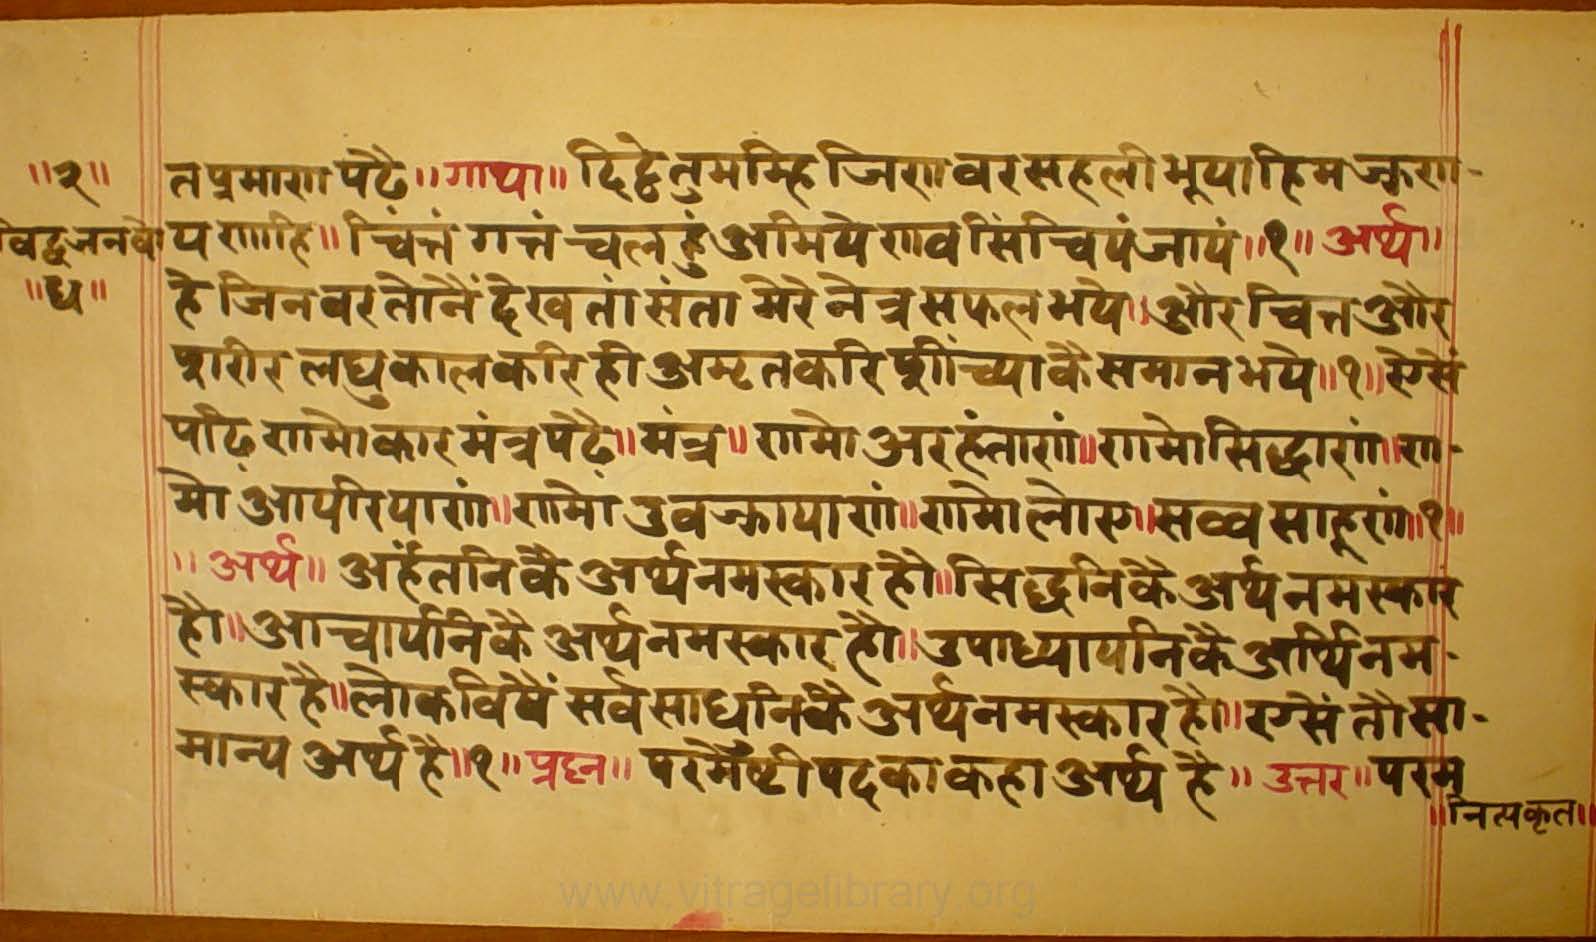 ॥२॥ त प्रमाण पढै ॥ गाथा ॥ दिट्ठे तुमम्हि जिणवर सहली भूयाहि मज्झण-
विद्वजनबो यणाहि ॥ चिंत्तं गत्तं च लहुं अमिये णव सिंचियं जायं ॥१॥ अर्थ ॥
॥ध॥ हे जिनवर तोनैं देखतां संता मेरे नेत्र सफल भये । और चित्त और
शरीर लघुकाल करि ही अमृत करि शींच्या कै समान भये ॥१॥ ऐसें
पढि णमोकार मंत्र पढै ॥ मंत्र ॥ णमो अरहंताणं ॥ णमो सिद्धाणं ॥ ण-
मो आयरियाणं ॥ णमो उवज्झायाणं ॥ णमो लोए ॥ सव्व साहूणं ॥१॥
॥ अर्थ ॥ अर्हंतनि कै अर्थ नमस्कार हौ ॥ सिद्धनि कै अर्थ नमस्कार
हौ ॥ आचार्यनि कै अर्थ नमस्कार हौ ॥ उपाध्यायनि कै अर्थि नम-
स्कार है ॥ लोक विषैं सर्व साधनि कै अर्थ नमस्कार हौ ॥ ऐसें तौ सा-
मान्य अर्थ है ॥१॥ प्रश्न ॥ परमैष्टी पद का कहा अर्थ है ॥ उत्तर ॥ परम
॥ नित्यकृत ॥
www.vitragelibrary.org